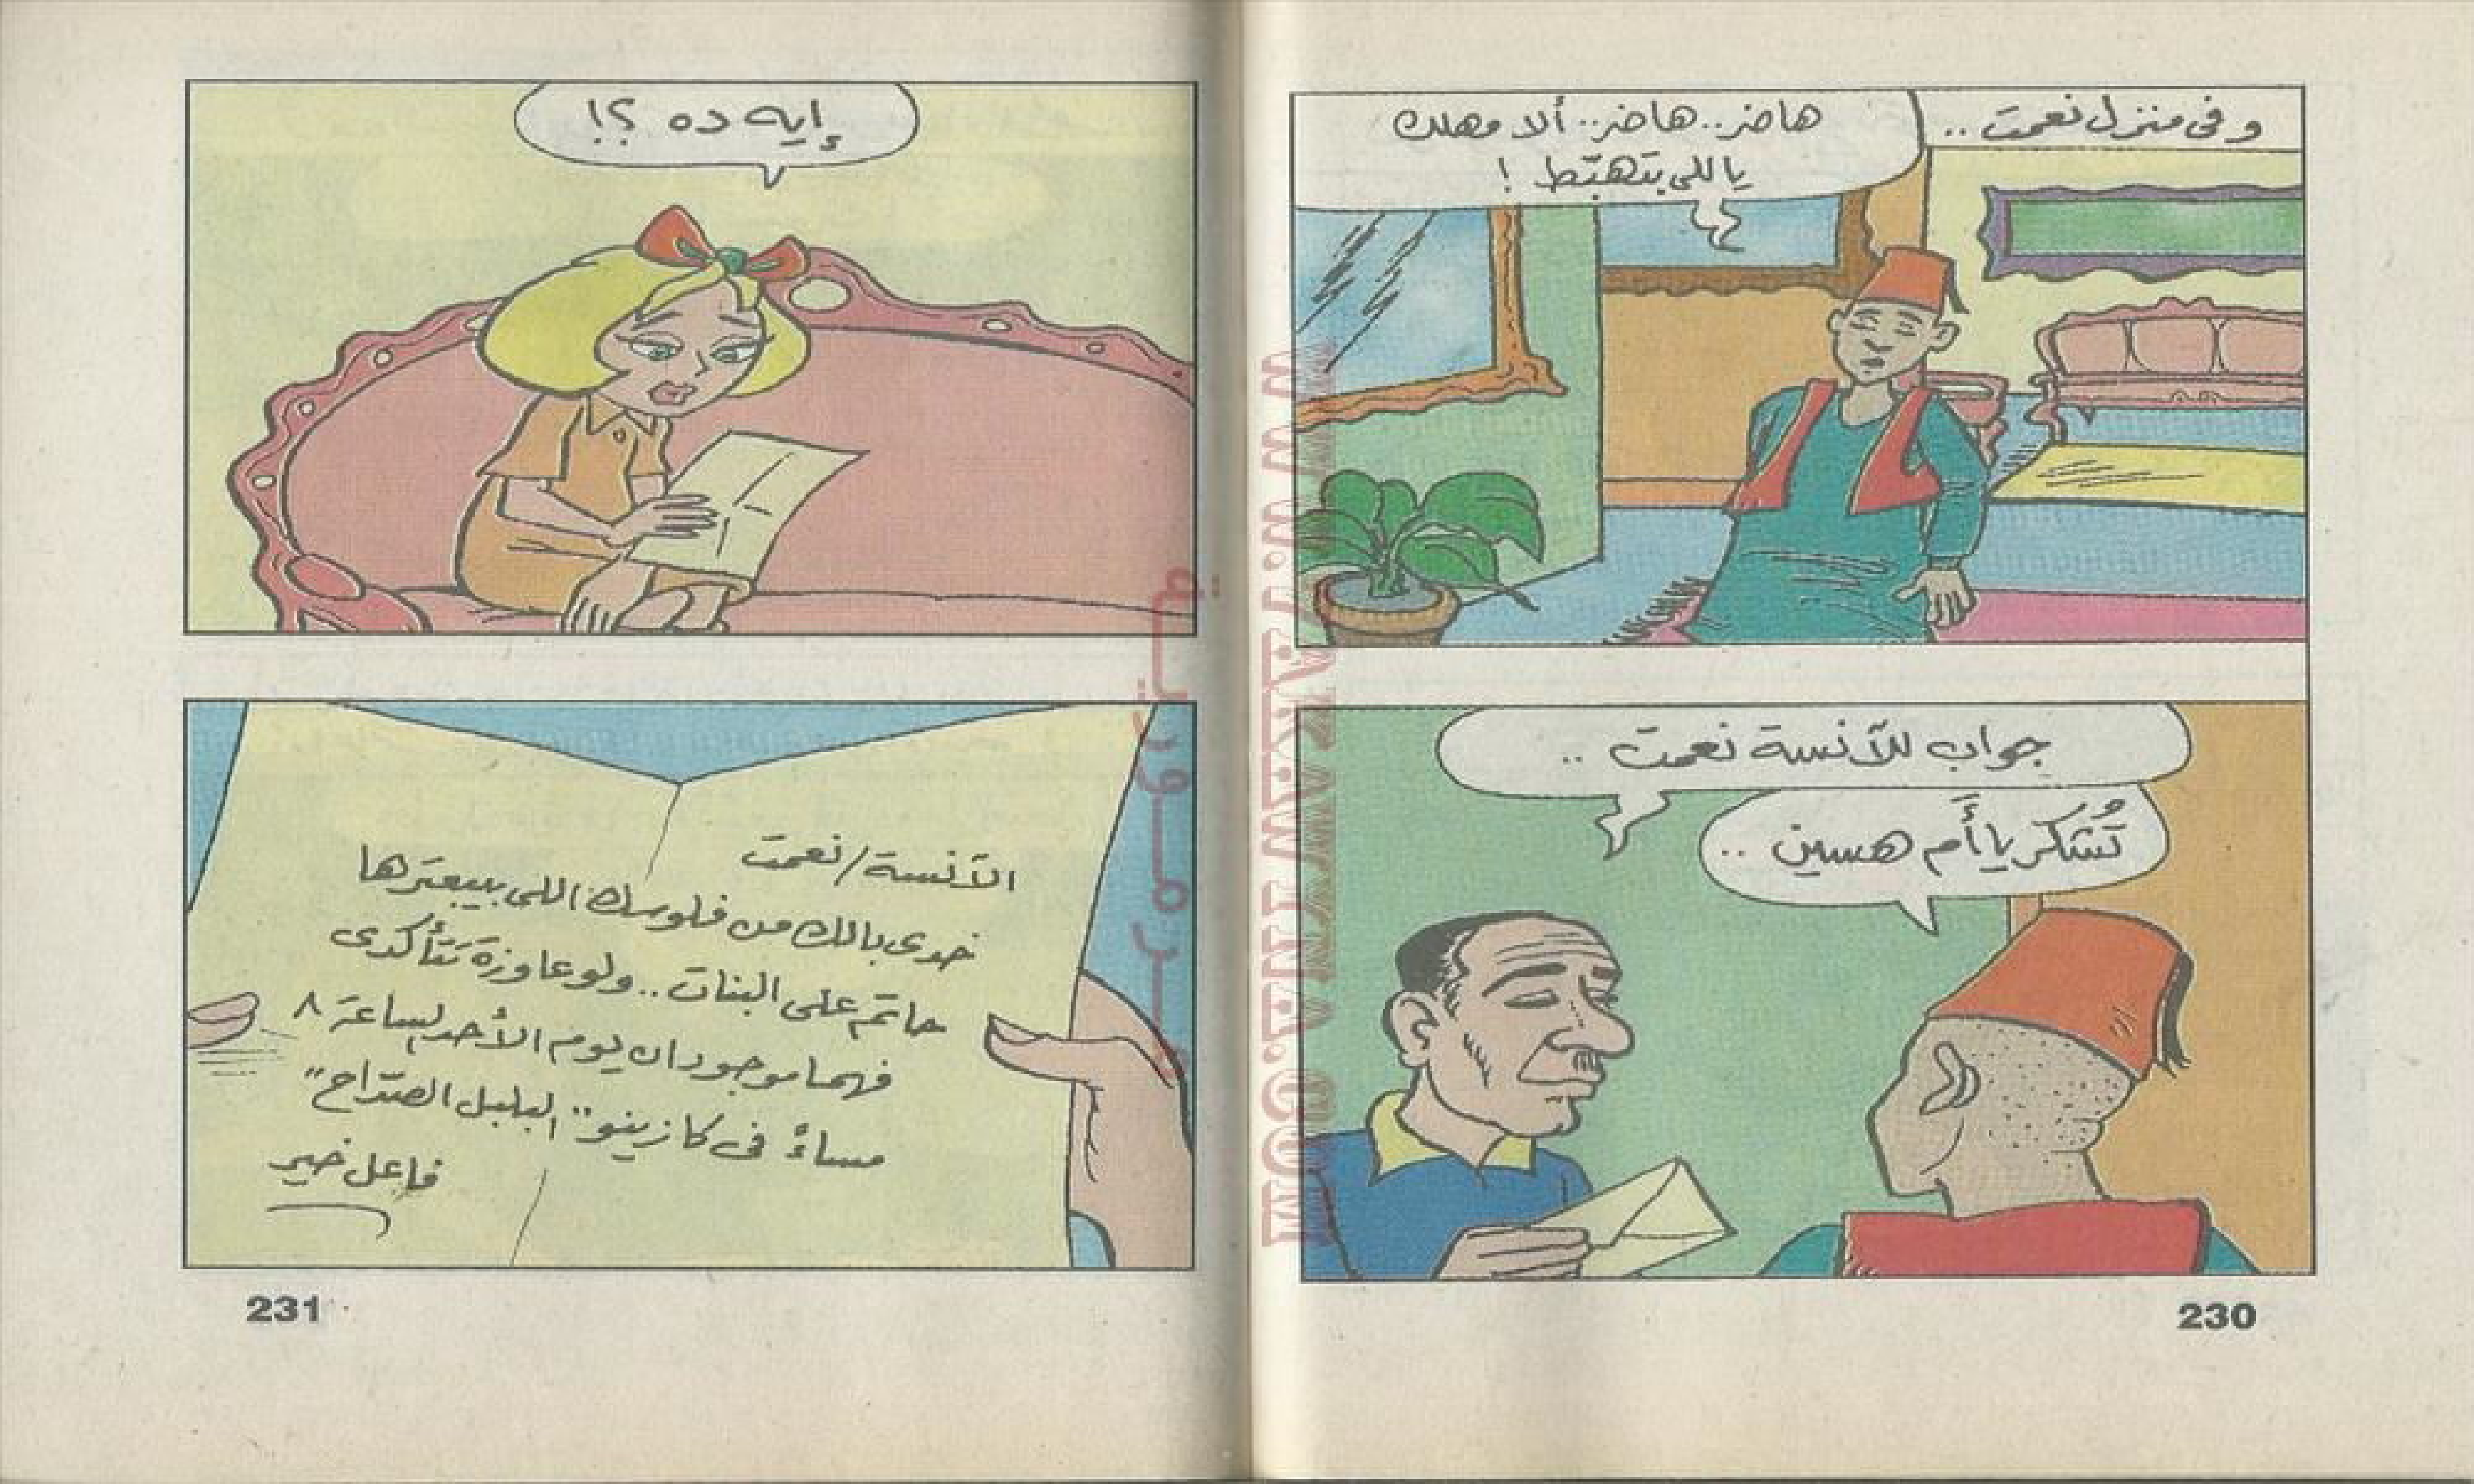 وفى منزل نعمت ..
هاضر .. هاضر .. ألا مهلك
ياللى بتهبّط !
جواب للآنسة نعمت ..
تُشكر يا أَم هسين ..
230
إيه ده ؟!
الآنسة / نعمت
خدى بالك من فلوسك اللى بيبعترها
حاتم على البنات .. ولو عاوزة تتأكدى
فهما موجودان يوم الأحد الساعة ٨
مساءً فى كازينو " البلبل الصدّاح "
فاعل خير
231
WWW.ARABCOMICS.NET